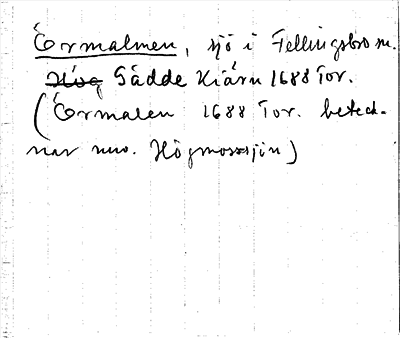 Órmalmen, sjö i Fellingsbro sn.
Hög Gädde Kiärn 1688 Tor.
(Órmalen 1688 Tor. beteck-
nar nuv. Högmosssjön)